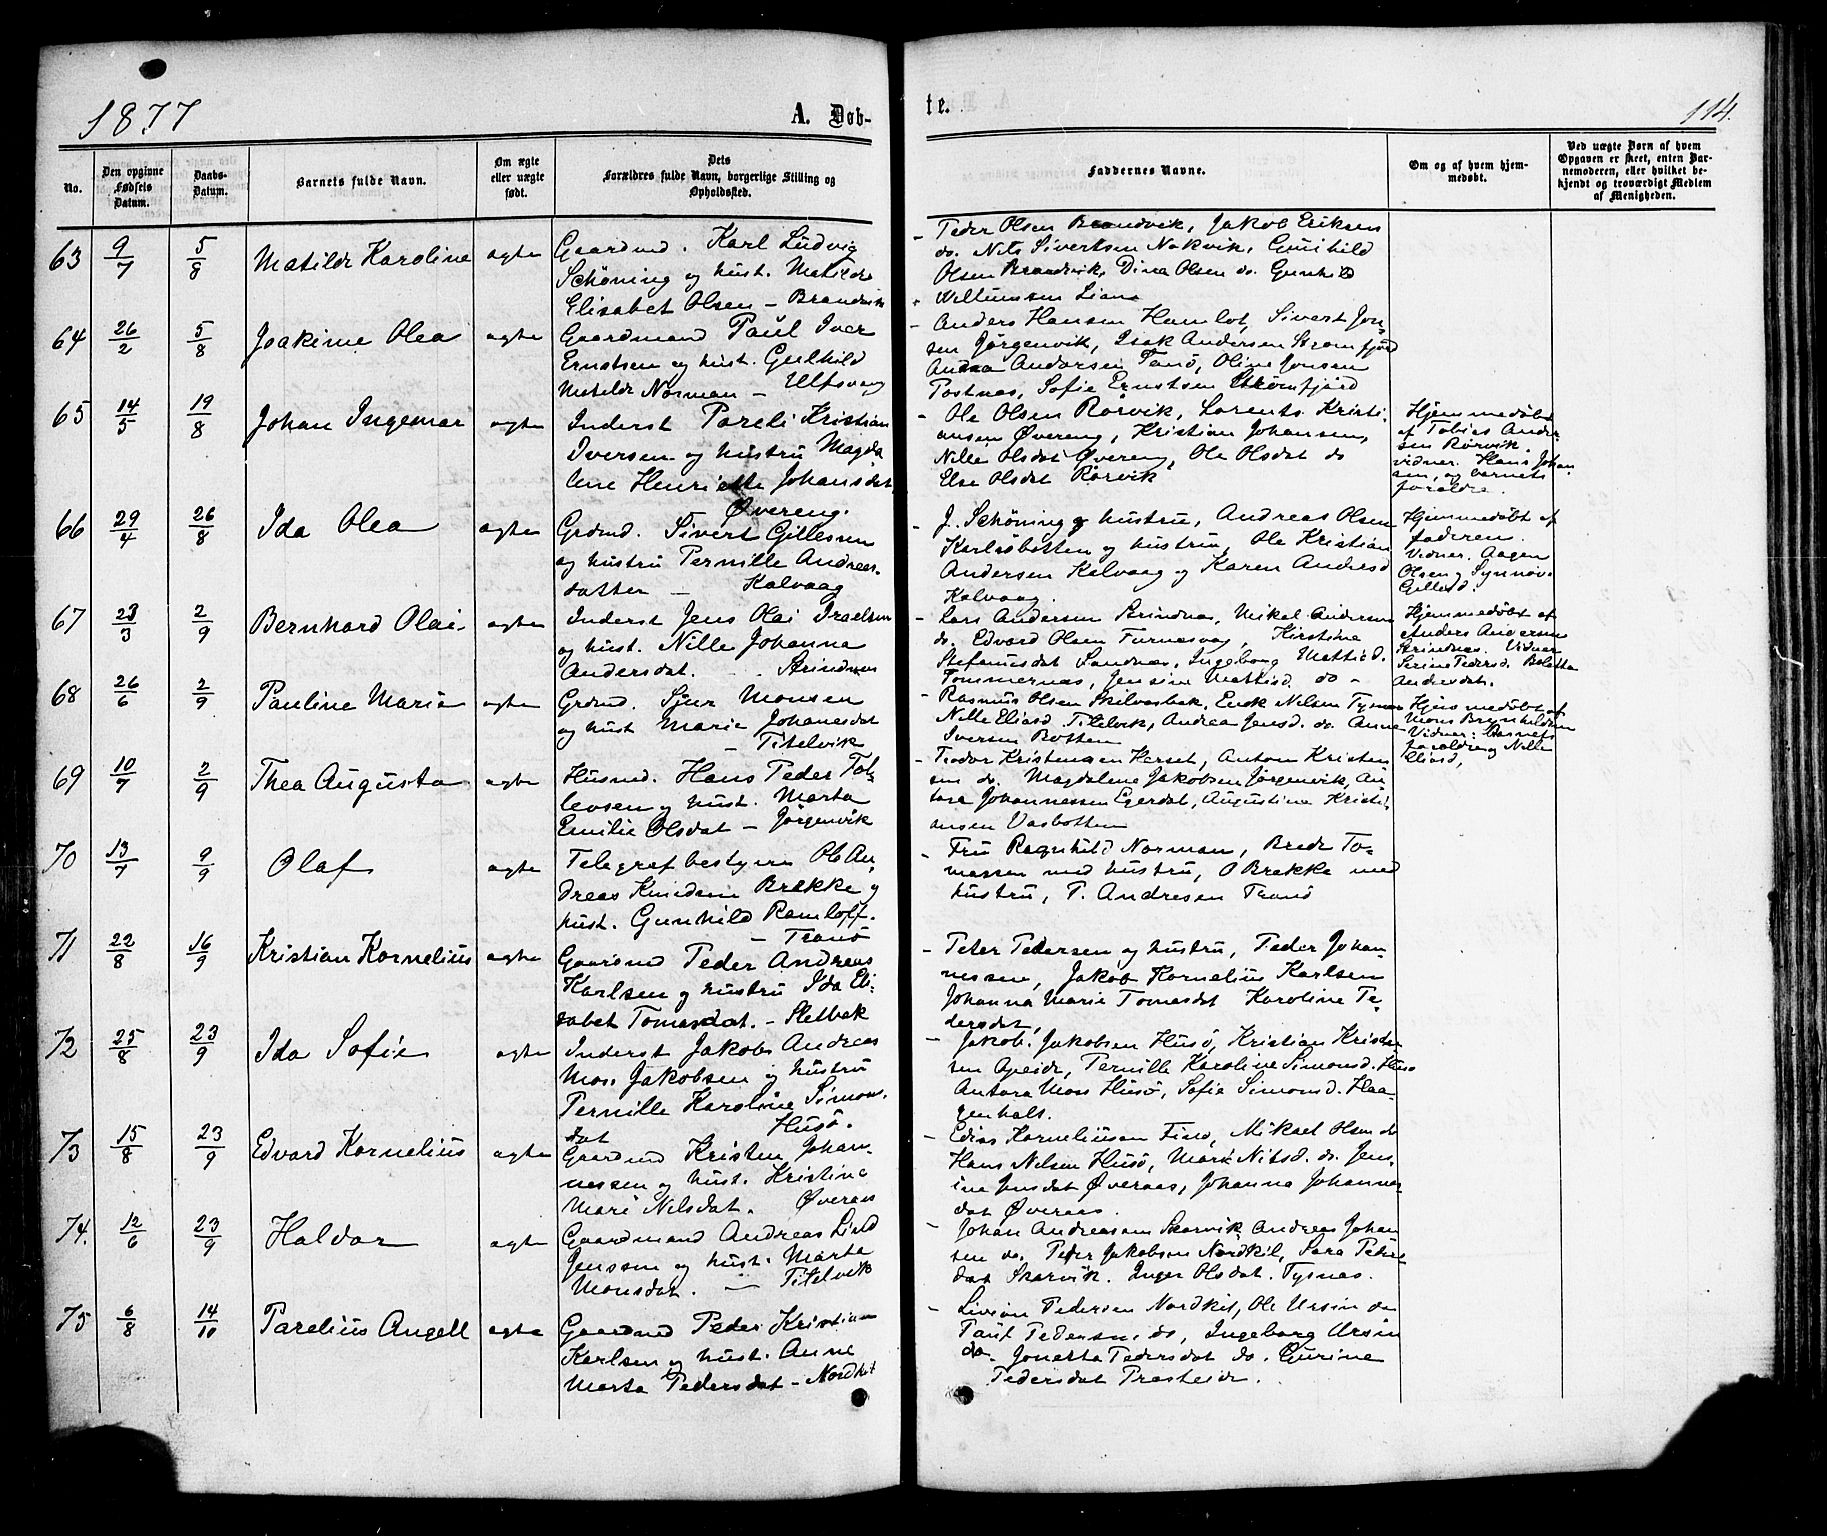 1877
A. Døb-
te.
114.
No.
Den opgivne Fødsels Datum.
Daabs-Datum.
Barnets fulde Navn.
Om ægte eller uægte født.
Dets Forældres fulde Navn, borgerlige Stilling og Opholdssted.
Faddernes Navne.
Om og af hvem hjem-medøbt.
Ved uægte Børn af hvem Opgaven er skeet, enten Bar-nemoderen, eller hvilket be-kjendt og troværdigt Medlem af Menigheden.
63 9/7 5/8 Matilde Karoline ægte
Gaardmd. Karl Ludvig
Schöning og hust. Matilde
Elisabet Olsen - Brandvik
- Peder Olsen Brandvik, Jakob Eriksen
do. Nils Sivertsen Nakvik, Gunhild
Olsen Brandvik, Dina Olsen do. Gunhild
Willumsen Liane
64 26/2 5/8 Joakime Olea ægte
Gaardmand Paul Iver
Ernstsen og hust. Gulhild
Matilde Norman - Ulfsvaag
- Anders Hansen Hamlot, Sivert Jon-
sen Jørgenvik, Isak Andersen Strømfjord
Andrea Andersen Tanö, Oline Jensen
Postnes, Sofie Ernstsen Strömfjord
65 14/5 19/8 Johan Ingemar ægte
Inderst Pareli Kristian
Iversen og hustru Magda
lene Henriette Johansdat
Øvereng.
- Ole Olsen Rörvik, Lorents Kristi-
ansen Øvereng, Kristian Johansen,
Nille Olsdat Øvereng, Ole Olsdat do
Else Olsdat Rörvik
Hjemmedøbt
af Tobias Ander-
sen Rörvik.
vidner. Hans Johan
sen, og barnets
forældre.
66 29/4 26/8 Ida Olea ægte
Grdmd. Sivert Gillesen
og hustru Pernille Andreas-
datter - Kalvaag
- J. Schöning og hustru, Andreas Olsen
Karlsöbotten og hustru, Ole Kristian
Andersen Kalvaag og Karen Andresd
Kalvaag.
Hjemmedøbt af
faderen.
Vidner. Aagen
Olsen og Synnøv
Gillesd.
67 23/3 2/9 Bernhard Olai ægte
Inderst Jens Olai Israelsen
og hust. Nille Johanna
Andersdat. - Strindnes
- Lars Andersen Strindnes, Mikal Andersen
do. Edvard Olsen Furnesvag, Kirstine
Stefanusdat Sandnes, Ingeborg Mattisd.
Tömmernes, Jensine Mattisd. do -
Hjemmedøbt af
Anders Andersen
Strindnes. Vidner
Serine Pedersd. Boletta
Andersdat.
68 26/6 2/9 Pauline Marie ægte
Grdmd. Sjur Monsen
og hust Marie Johanesdat
- Titelvik
- Rasmus Olsen Skilvasbak, Enok Nilsen Tysnes
Nille Eliasd. Titelvik, Andrea Jensd. do. Anne
Iversen Botten
Hjemmedøbt af
Mons Brynhildsen
Vidner: Barnets
forældre og Nille
Eliasd,
69 10/7 2/9 Thea Augusta ægte
Husmd. Hans Peder Tol-
levsen og hust. Marta
Emilie Olsdat - Jørgenvik
- Teodor Kristensen Herset, Anton Kristen
sen do. Magdalene Jakobsen Jørgenvik, An-
tora Johannessen Egerdal, Augustine Kristi-
ansen Vasbotten
70 13/7 9/9 Olaf ægte
Telegrafbestyrer Ole An-
dreas Knudsen Brække og
hust. Gunhild Ramloff.
- Tranö
- Fru Ragnhild Norman, Brede To-
massen med hustru, O Brække med
hustru, P. Andresen Tranö
71 22/8 16/9 Kristian Kornelius ægte
Gaardmd Peder Andreas
Karlsen og hustru Ida Eli-
sabet Tomasdat. - Sletbak
- Peter Pedersen og hustru, Peder Johan-
nessen, Jakob Kornelius Karlsen
Johanna Marie Tomasdat Karoline Pe-
dersdat,
72 25/8 23/9 Ida Sofie ægte
Inderst Jakob Andreas
Mos. Jakobsen og hustru
Pernille Karoline Simons.
dat Husö.
- Jakob. Jakobsen Husö, Kristian Kristen
sen Apeidr, Pernille Karoline Simonsd. Husö
Antora Mos Husö, Sofie Simonsd. Haa-
genhalt.
73 15/8 23/9 Edvard Kornelius ægte
Gaardmd Kristen Johan-
nessen og hust. Kristine
Mari Nilsdat. Øveraas
- Edias Korneliussen Finö, Mikael Olsen do
Hans Nilsen Husö, Mari Nilsd. do. Jens-
ine Jensdat Øveraas, Johanna Johannes-
dat Øveraas.
74. 12/6 23/9 Haldor ægte
Gaardmand Andreas Lind
Jenssen og hust. Marta
Monsdat. - Titelvik
- Johan Andreassen Skarvik, Andreas Johan
sen do. Peder Jakobsen Nordkil, Sara Peders
dat Skarvik. Inger Olsdat. Tysnes.
75 6/8 14/10 Parelius Angell ægte
Gaardmd Peder Kristian
Karlsen og hust. Anne
Marta Pedersdat - Nordkil
- Sivion Pedersen Nordkil, Ole Ursin do
Paul Pedersen do, Ingeborg Ursin
do. Jonetta Pedersdat do. Gurine
Pedersdat Presteide.